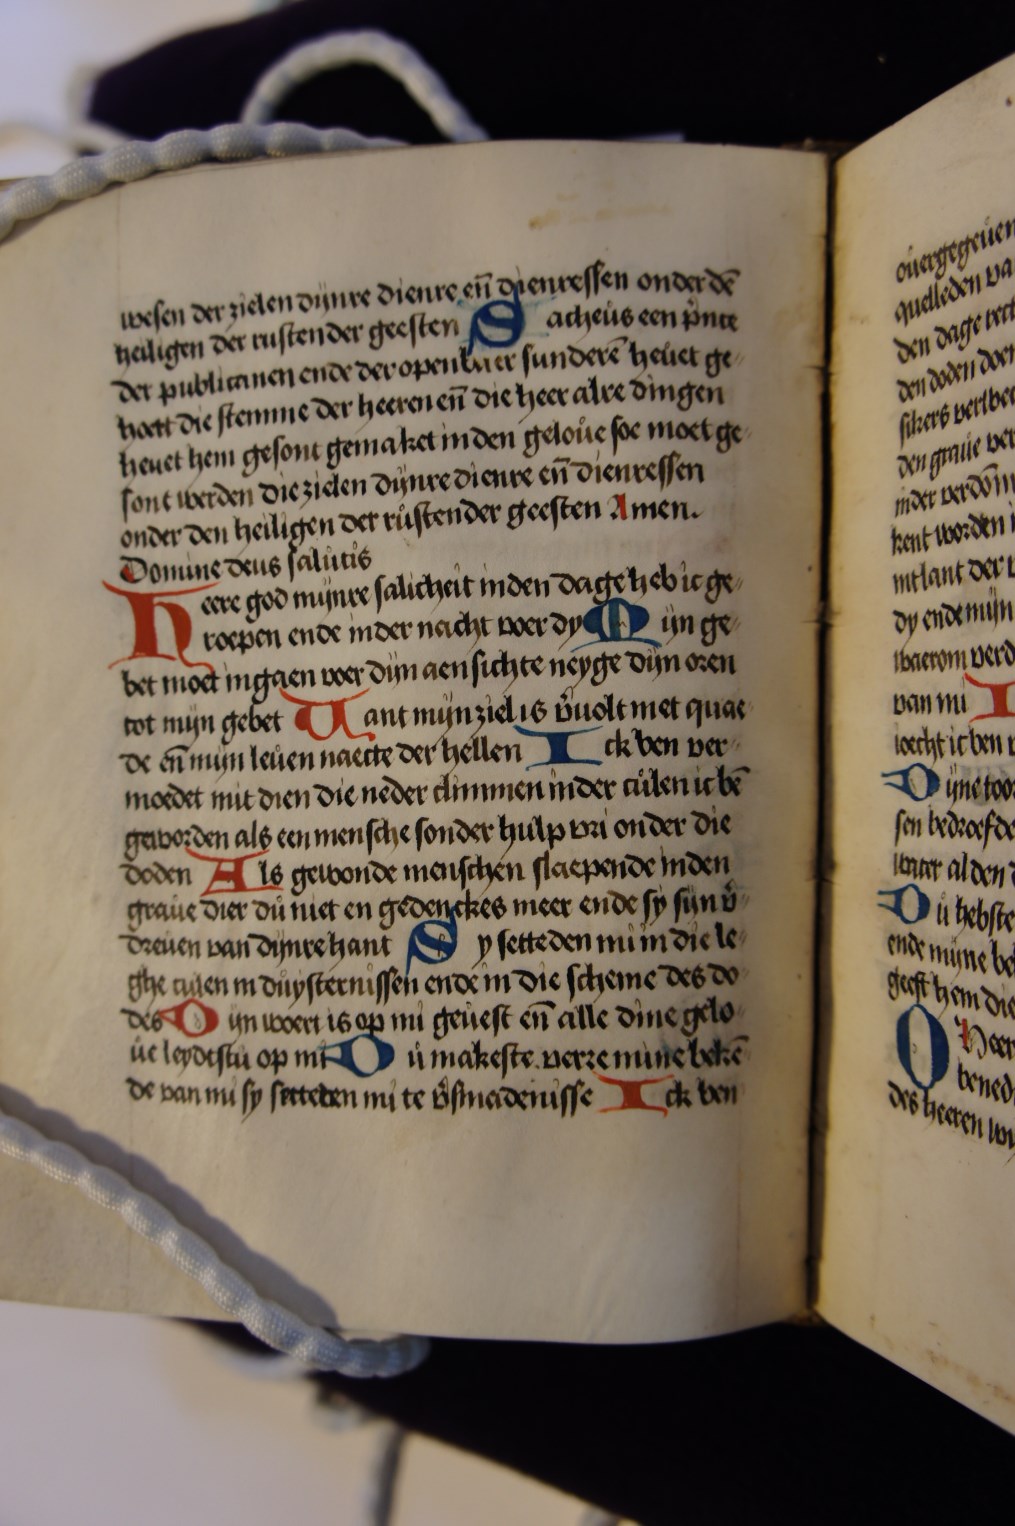 wesen der zielen dijnre dienre en̄ dienressen onder dē
heiligen der rustender geesten Sacheus een p̄nce
der publicanen ende der openbaer sunderē heuet ge
hoert die stemme der heeren en̄ die heer alre dingen
heuet hem gesont gemaket in den geloue soe moet ge
sont werden die zielen dijnre dienre en̄ dienressen
onder den heiligen der rustender geesten Amen.
Domine deus salutis
Heere god mijnre salicheit in den dage heb ic ge
roepen ende in der nacht voer dy Mijn ge
bet moet ingaen voer dijn aensichte neyge dijn oren
tot mijn gebet Want mijn ziel is v̄uolt met quae
de en̄ mijn leuen naecte der hellen Ick ben ver
moedet mit dien die neder climmen in der culen ic bē
geworden als een mensche sonder hulp vri onder die
doden Als gewonde menschen slaepende in den
graue dier du niet en gedenckes meer ende sy sijn v̄
dreuen van dijnre hant Sy setteden mi in die le
ghe culen in duysternissen ende in die scheme des do
des Dijn woert is op mi geuest en̄ alle dine gelo
ue leydestu op mi Du makeste verre mine bekē
de van mi sy setteden mi te v̄smadenisse Ick ben
ouergegeuen
quelleden va
den dage
den doden
den graue ver
in der
kent worden
dy ende mijn
waerom
van mi I
ic ben
Dijne
sen bedroefde
water al den
Du hebste
ende mijne be
geeft hem die
O Heer
bened
des heeren